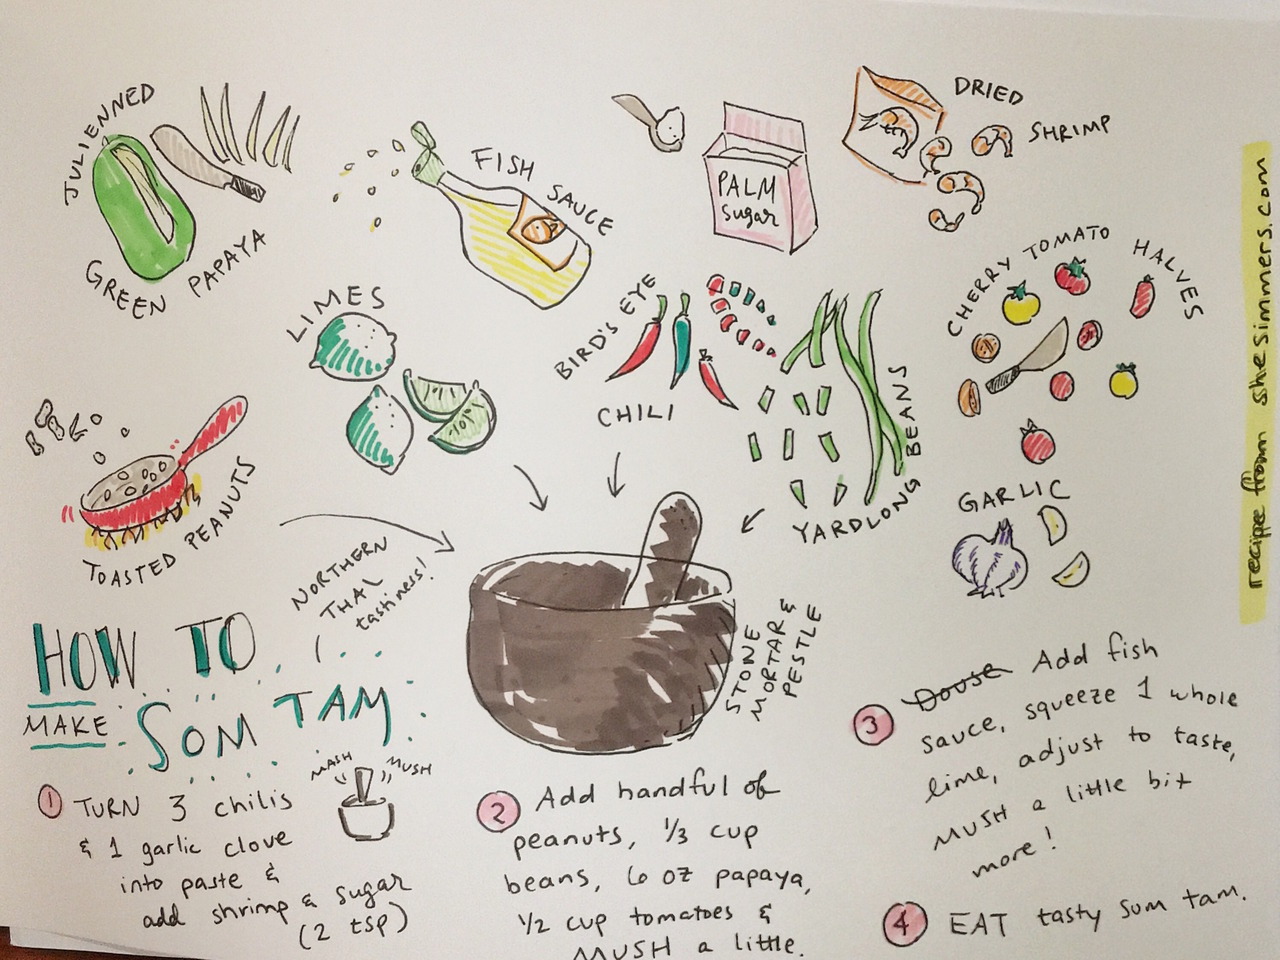 JULIENNED
GREEN PAPAYA
FISH SAUCE
PALM
sugar
DRIED
SHRIMP
LIMES
BIRD'S EYE
CHILI
YARDLONG BEANS
CHERRY TOMATO HALVES
GARLIC
TOASTED PEANUTS
NORTHERN
THAI
tastiness!
STONE
MORTAR &
PESTLE
recipe from shesimmers.com
HOW TO
MAKE SOM TAM
MASH MUSH
1 TURN 3 chilis
& 1 garlic clove
into paste &
add shrimp & sugar
(2 tsp)
2 Add handful of
peanuts, 1/3 cup
beans, 6 oz papaya,
1/2 cup tomatoes &
MUSH a little.
3 Douse Add fish
sauce, squeeze 1 whole
lime, adjust to taste,
MUSH a little bit
more!
4 EAT tasty som tam.